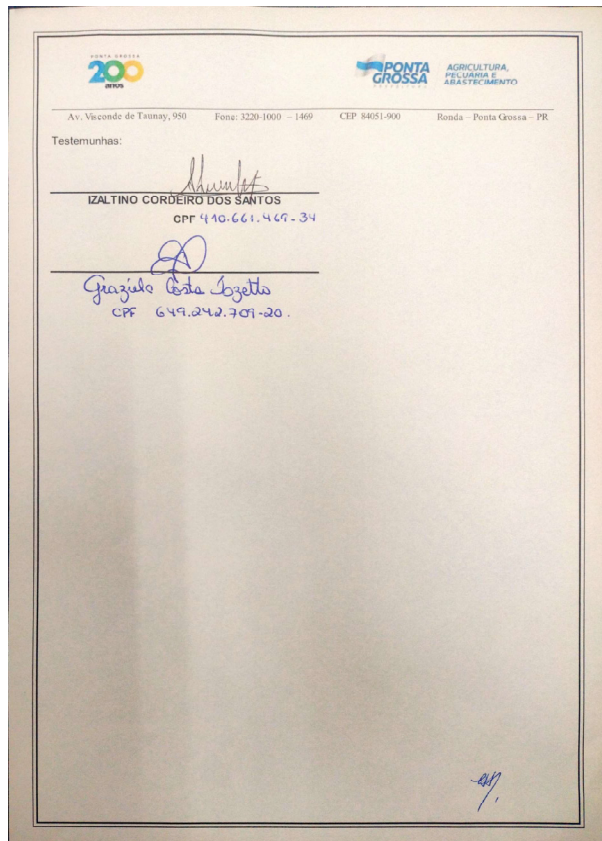 PONTA GROSSA
200
anos
PONTA
GROSSA
PREFEITURA
AGRICULTURA,
PECUÁRIA E
ABASTECIMENTO
Av. Visconde de Taunay, 950 Fone: 3220-1000 – 1469 CEP 84051-900 Ronda – Ponta Grossa – PR
Testemunhas:
IZALTINO CORDEIRO DOS SANTOS
CPF 410.661.469-34
Graziele Costa Jozetto
CPF 649.242.709-20.